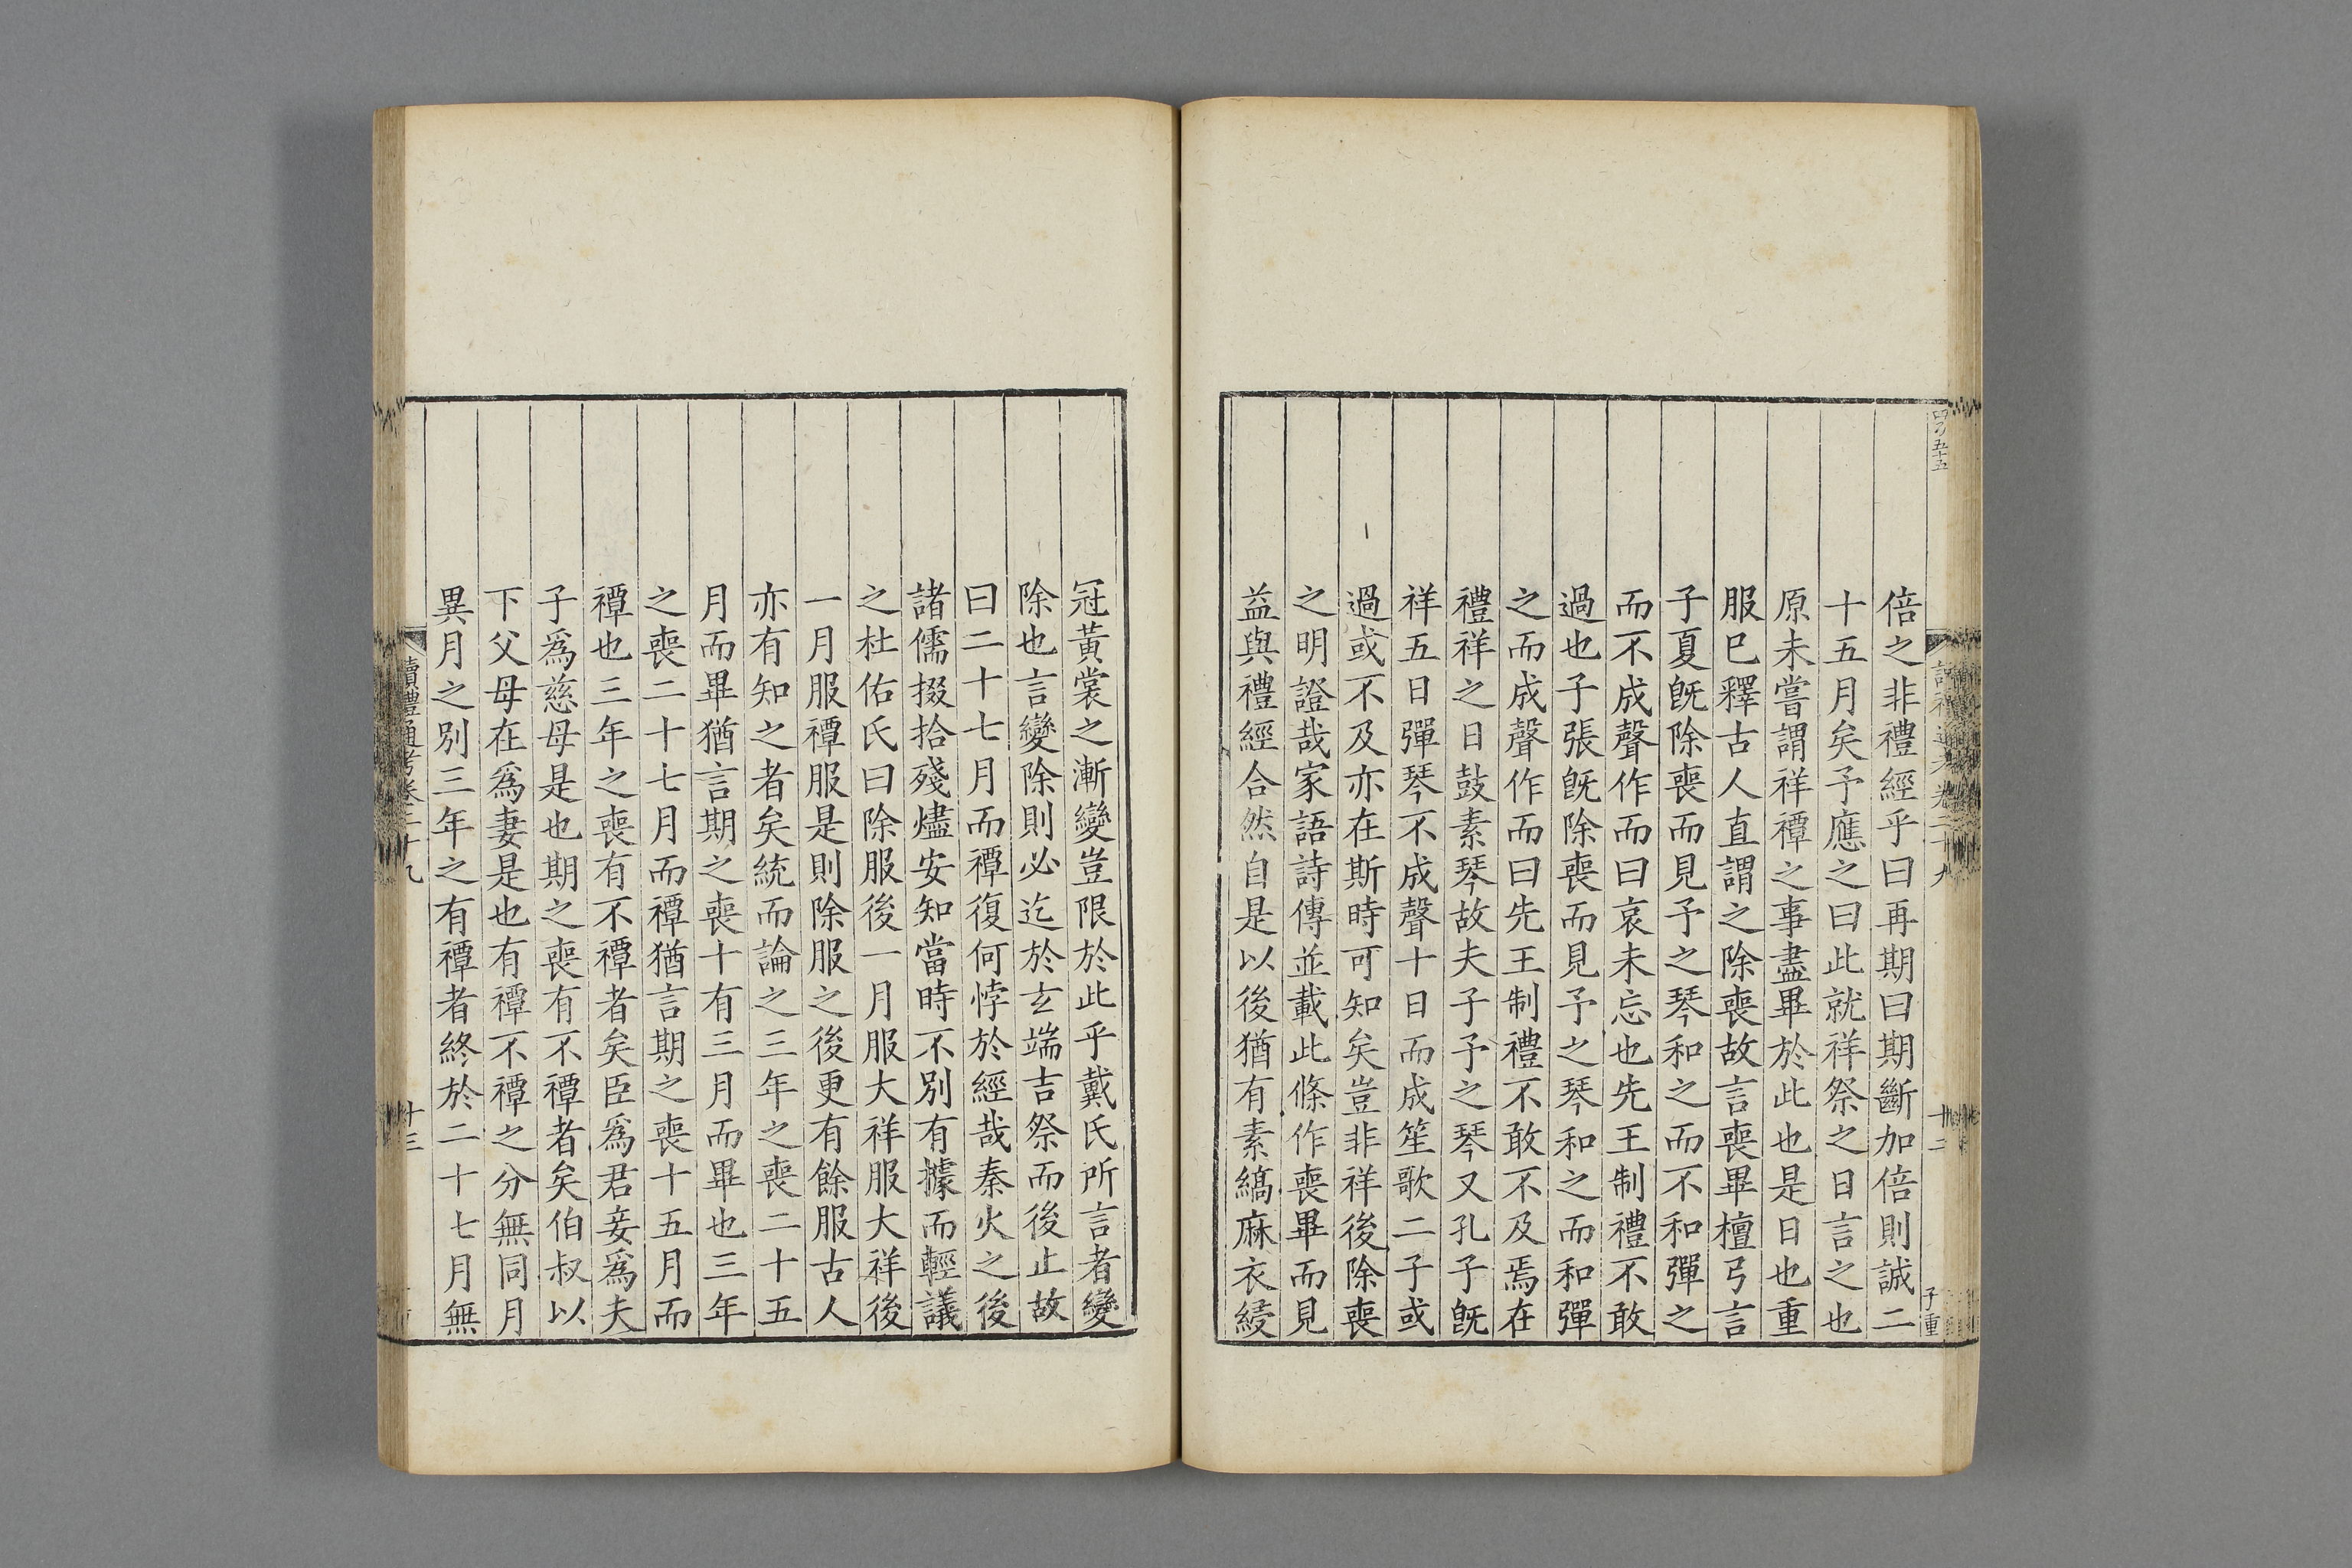 倍之非禮經乎曰再期曰期斷加倍則誠二
十五月矣予應之曰此就祥祭之日言之也
原未嘗謂祥禫之事盡畢於此也是日也重
服已釋古人直謂之除喪故言喪畢檀弓言
子夏旣除喪而見予之琴和之而不和彈之
而不成聲作而曰哀未忘也先王制禮不敢
過也子張旣除喪而見予之琴和之而和彈
之而成聲作而曰先王制禮不敢不及焉在
禮祥之日鼓素琴故夫子予之琴又孔子旣
祥五日彈琴不成聲十日而成笙歌二子或
過或不及亦在斯時可知矣豈非祥後除喪
之明證哉家語詩傳並載此條作喪畢而見
益與禮經合然自是以後猶有素縞麻衣綅
冠黃裳之漸變豈限於此乎戴氏所言者變
除也言變除則必迄於玄端吉祭而後止故
曰二十七月而禫復何悖於經哉秦火之後
諸儒掇拾殘燼安知當時不別有據而輕議
之杜佑氏曰除服後一月服大祥服大祥後
一月服禫服是則除服之後更有餘服古人
亦有知之者矣統而論之三年之喪二十五
月而畢猶言期之喪十有三月而畢也三年
之喪二十七月而禫猶言期之喪十五月而
禫也三年之喪有不禫者矣臣爲君妾爲夫
子爲慈母是也期之喪有不禫者矣伯叔以
下父母在爲妻是也有禫不禫之分無同月
異月之別三年之有禫者終於二十七月無
讀禮通考卷二十九
十三